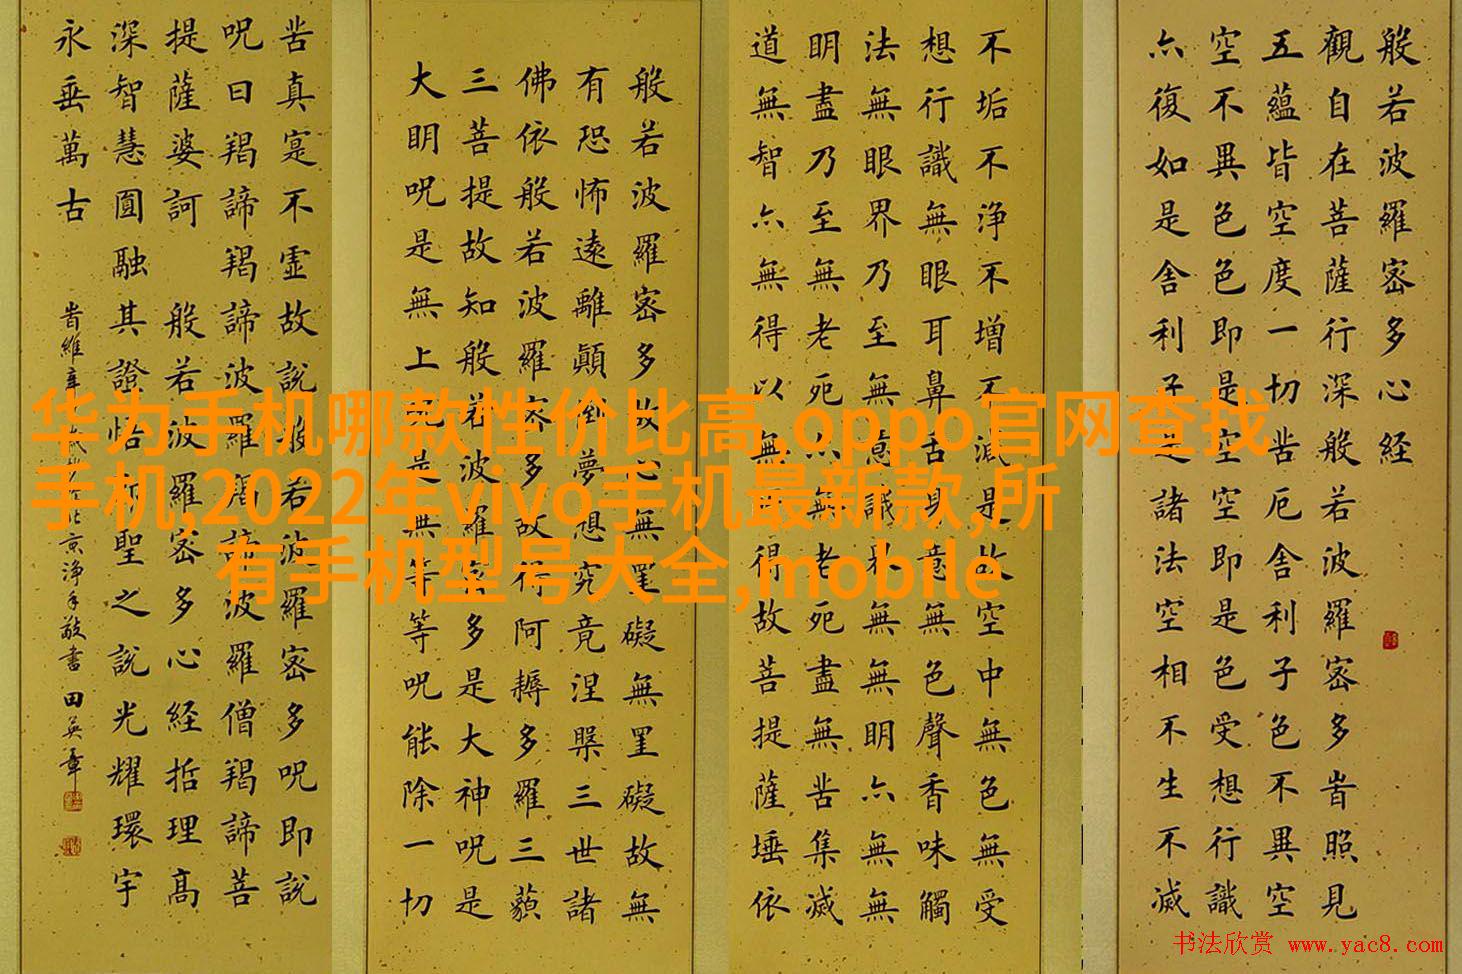 般若波羅密多心経
觀自在菩薩行深般若波羅密多峕照見
五蘊皆空度一切苦厄舍利子色不異空
空不異色色即是空空即是色受想行識
亦復如是舍利子是諸法空相不生不滅
不垢不浄不增不減是故空中無色無受
想行識無眼耳鼻舌身意無色聲香味觸
法無眼界乃至無意識界無無明亦無無
明盡乃至無老死亦無老死盡無苦集滅
道無智亦無得以無所得故菩提薩埵依
般若波羅密多故心無罣礙無罣礙故無
有恐怖遠離顛倒夢想究竟涅槃三世諸
佛依般若波羅密多故得阿耨多羅三藐
三菩提故知般若波羅密多是大神呪是
大明呪是無上呪是無等等呪能除一切
苦真寔不虛故說般若波羅密多呪即說
呪曰羯諦羯諦波羅羯諦波羅僧羯諦菩
提薩婆訶 般若波羅密多心経括理高
深智慧圓融其證悟聖之說光耀環宇
永垂萬古
峕維 京淨手敬書 田英章
华为手机哪款性价比高,oppo官网查找
手机,2022年vivo手机最新款,所
有手机型号大全,mobile
书法欣赏 www.yac8.com